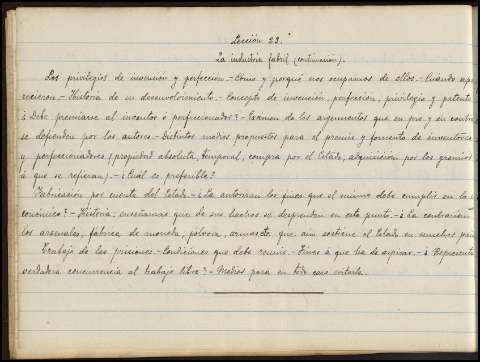 Lección 23.ª
La industria fabril (continuación).
Los privilegios de invención y perfección.- Cómo y porqué nos ocupamos de ellos.- Cuando apa
recieron.- Historia de su desenvolvimiento.- Concepto de invención, perfección, privilegio y patente
¿Debe premiarse al inventor é perfeccionador?- Examen de los argumentos que en pro y en contra
se defienden por los autores.- Distintos medios propuestos para el premio y fomento de inventores
y perfeccionadores (propiedad absoluta, temporal, compra por el Estado, adquisición por los gremios
á que se refieran).- ¿Cuál es preferible?
Fabricación por cuenta del Estado.- ¿La autorizan los fines que el mismo debe cumplir en la
conómico?- Historia; enseñanzas que de sus hechos se desprenden en este punto.- ¿La contrarían
los arsenales, fábrica de moneda, pólvora, armas, etc. que aun sostiene el Estado en muchos paí
Trabajo de las prisiones.- Condiciones que debe reunir.- Fines á que ha de aspirar.- ¿Representa
verdadera concurrencia al trabajo libre?- Medios para en todo caso evitarla.